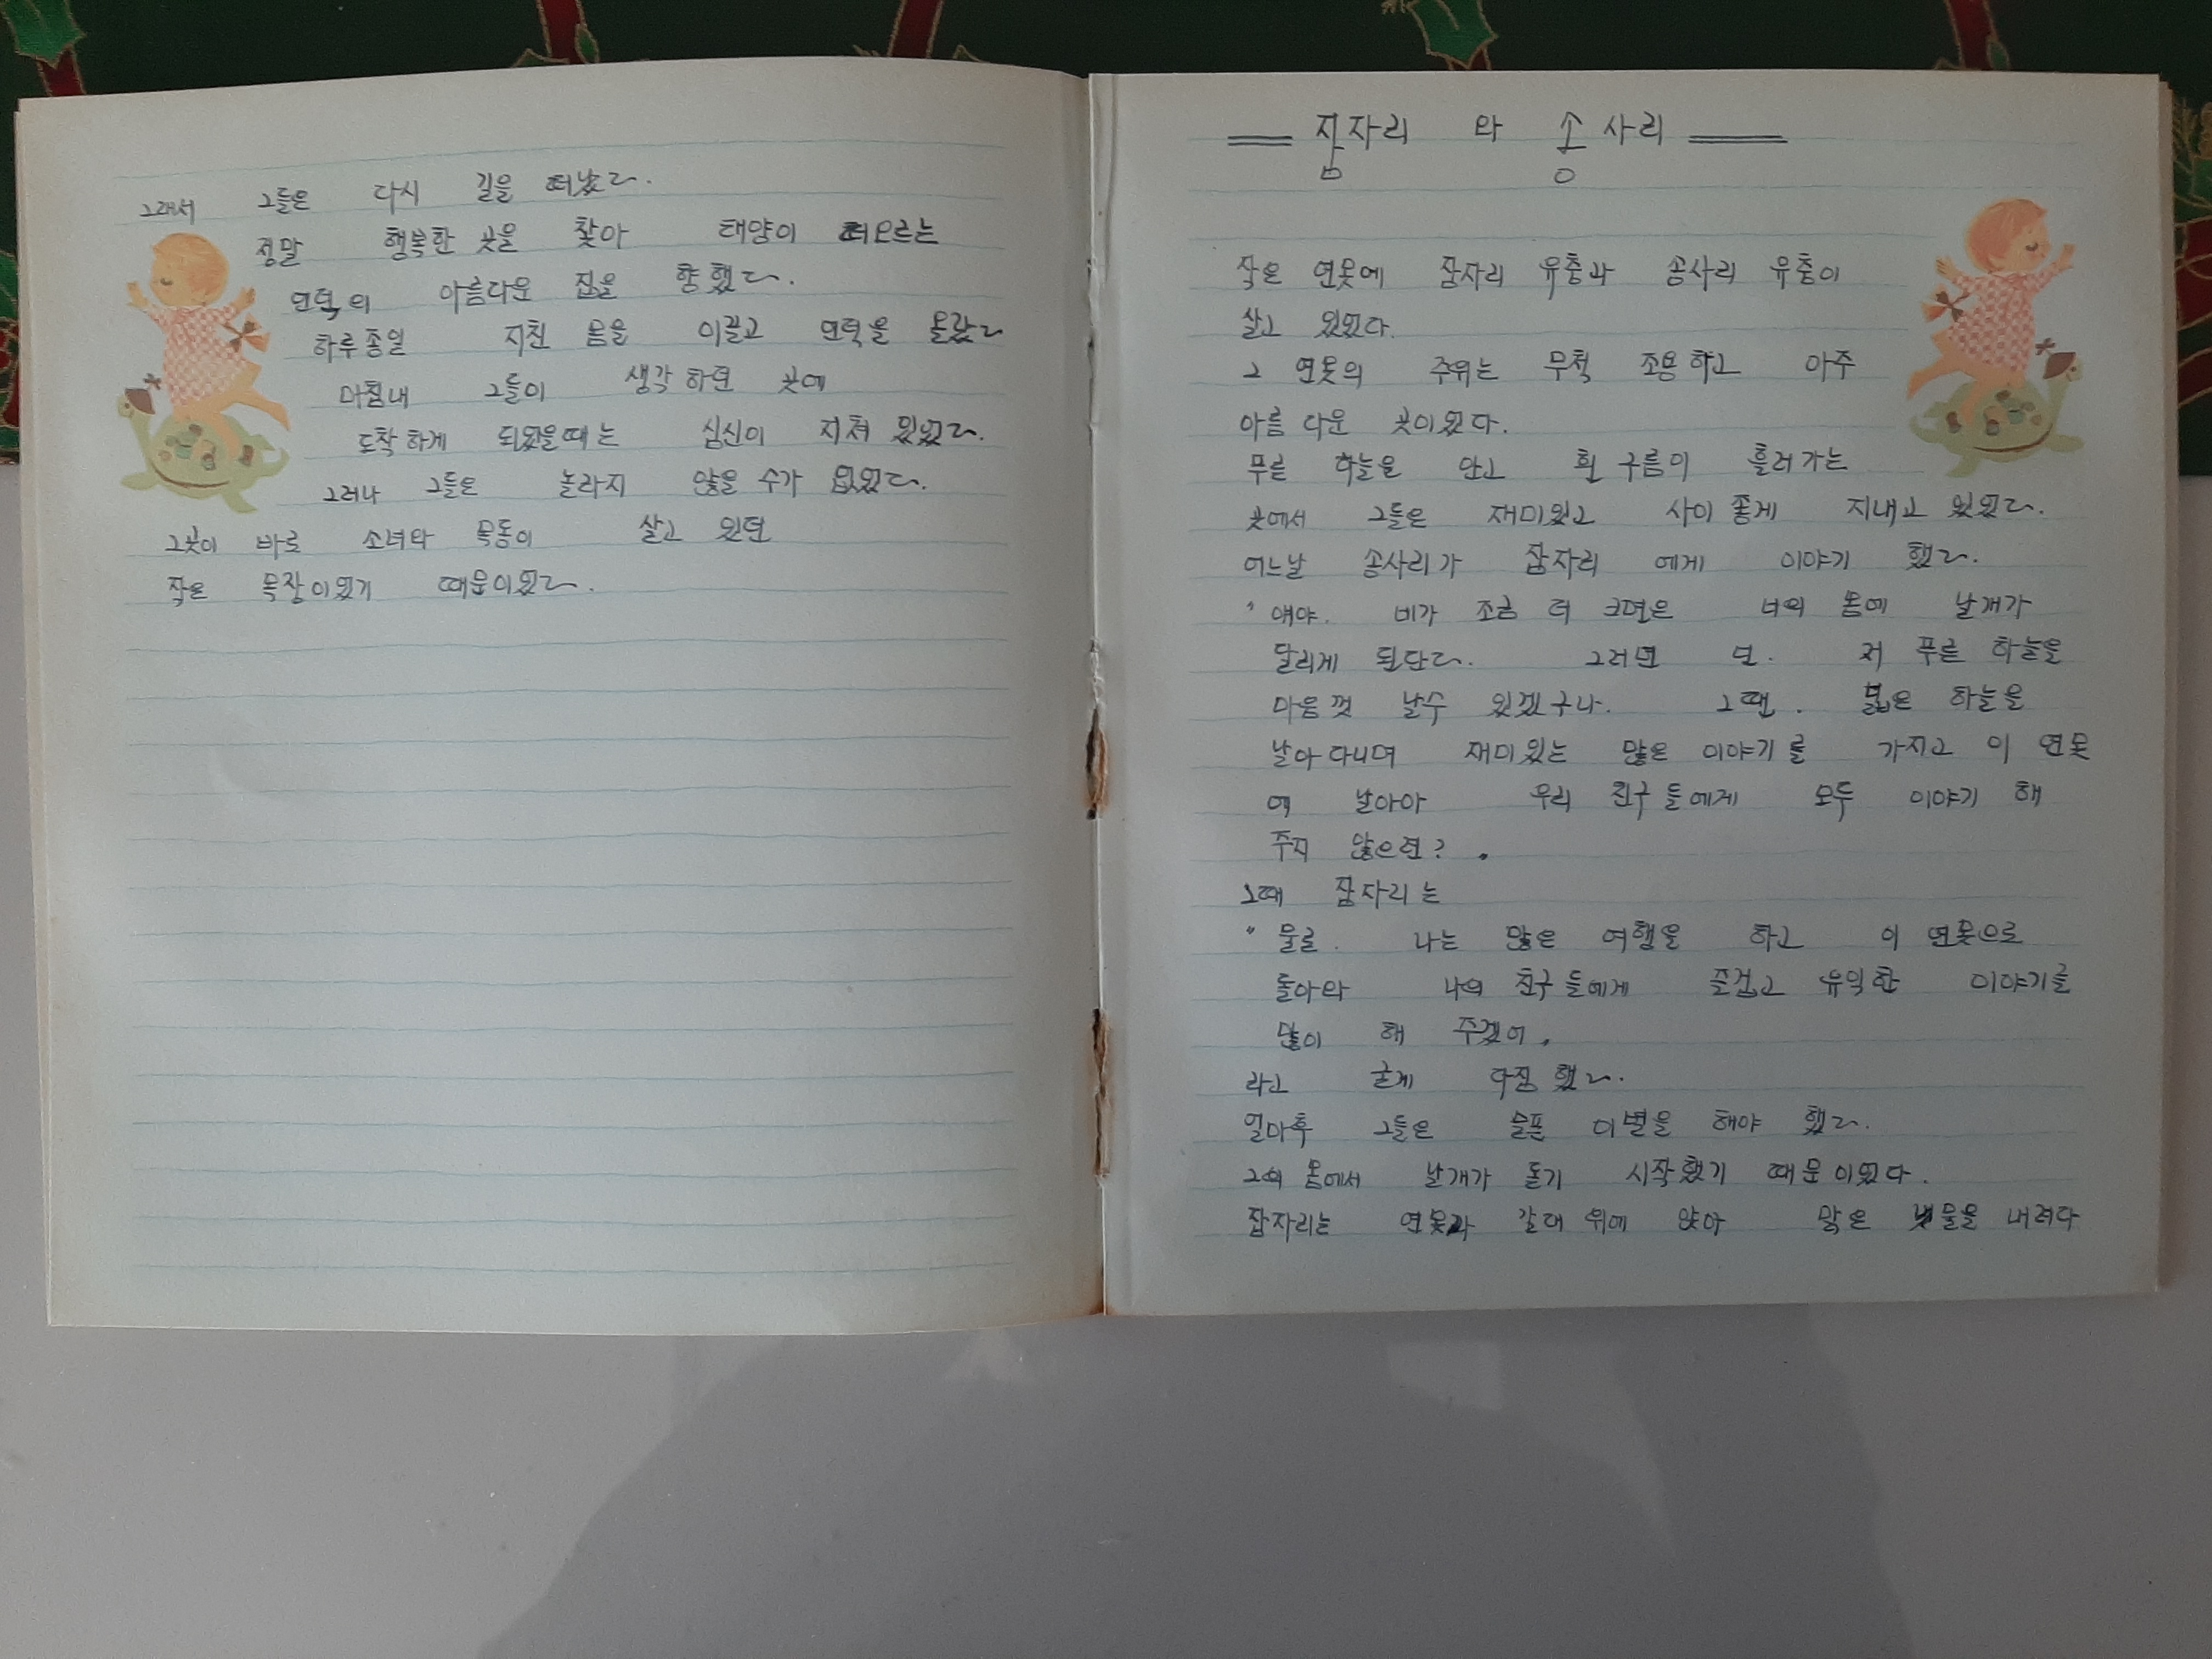 그래서 그들은 다시 길을 떠났다.
정말 행복한 곳을 찾아 태양이 떠오르는
언덕의 아름다운 집을 향했다.
하루종일 지친 몸을 이끌고 언덕을 올랐다
마침내 그들이 생각하던 곳에
도착하게 되었을때는 심신이 지쳐 있었다.
그러나 그들은 놀라지 않을 수가 없었다.
그곳이 바로 소녀와 목동이 살고 있던
작은 목장이었기 때문이었다.
잠자리 와 송사리
작은 연못에 잠자리 유충과 송사리 유충이
살고 있었다.
그 연못의 주위는 무척 조용하고 아주
아름다운 곳이었다.
푸른 하늘을 안고 흰 구름이 흘러가는
곳에서 그들은 재미있고 사이좋게 지내고 있었다.
어느날 송사리가 잠자리 에게 이야기 했다.
" 얘야. 네가 조금 더 크면은 너의 몸에 날개가
달리게 된단다. 그러면 넌. 저 푸른 하늘을
마음껏 날수 있겠구나. 그땐. 넓은 하늘을
날아다니며 재미있는 많은 이야기를 가지고 이 연못
에 날아아 우리 친구들에게 모두 이야기 해
주지 않으련? .
그때 잠자리는
" 물론. 나는 많은 여행을 하고 이 연못으로
돌아와 나의 친구들에게 즐겁고 유익한 이야기를
많이 해 주겠어.
라고 굳게 다짐 했다.
얼마후 그들은 슬픈 이별을 해야 했다.
그의 몸에서 날개가 돋기 시작했기 때문이었다.
잠자리는 연못가 갈대 위에 앉아 맑은 냇물을 내려다